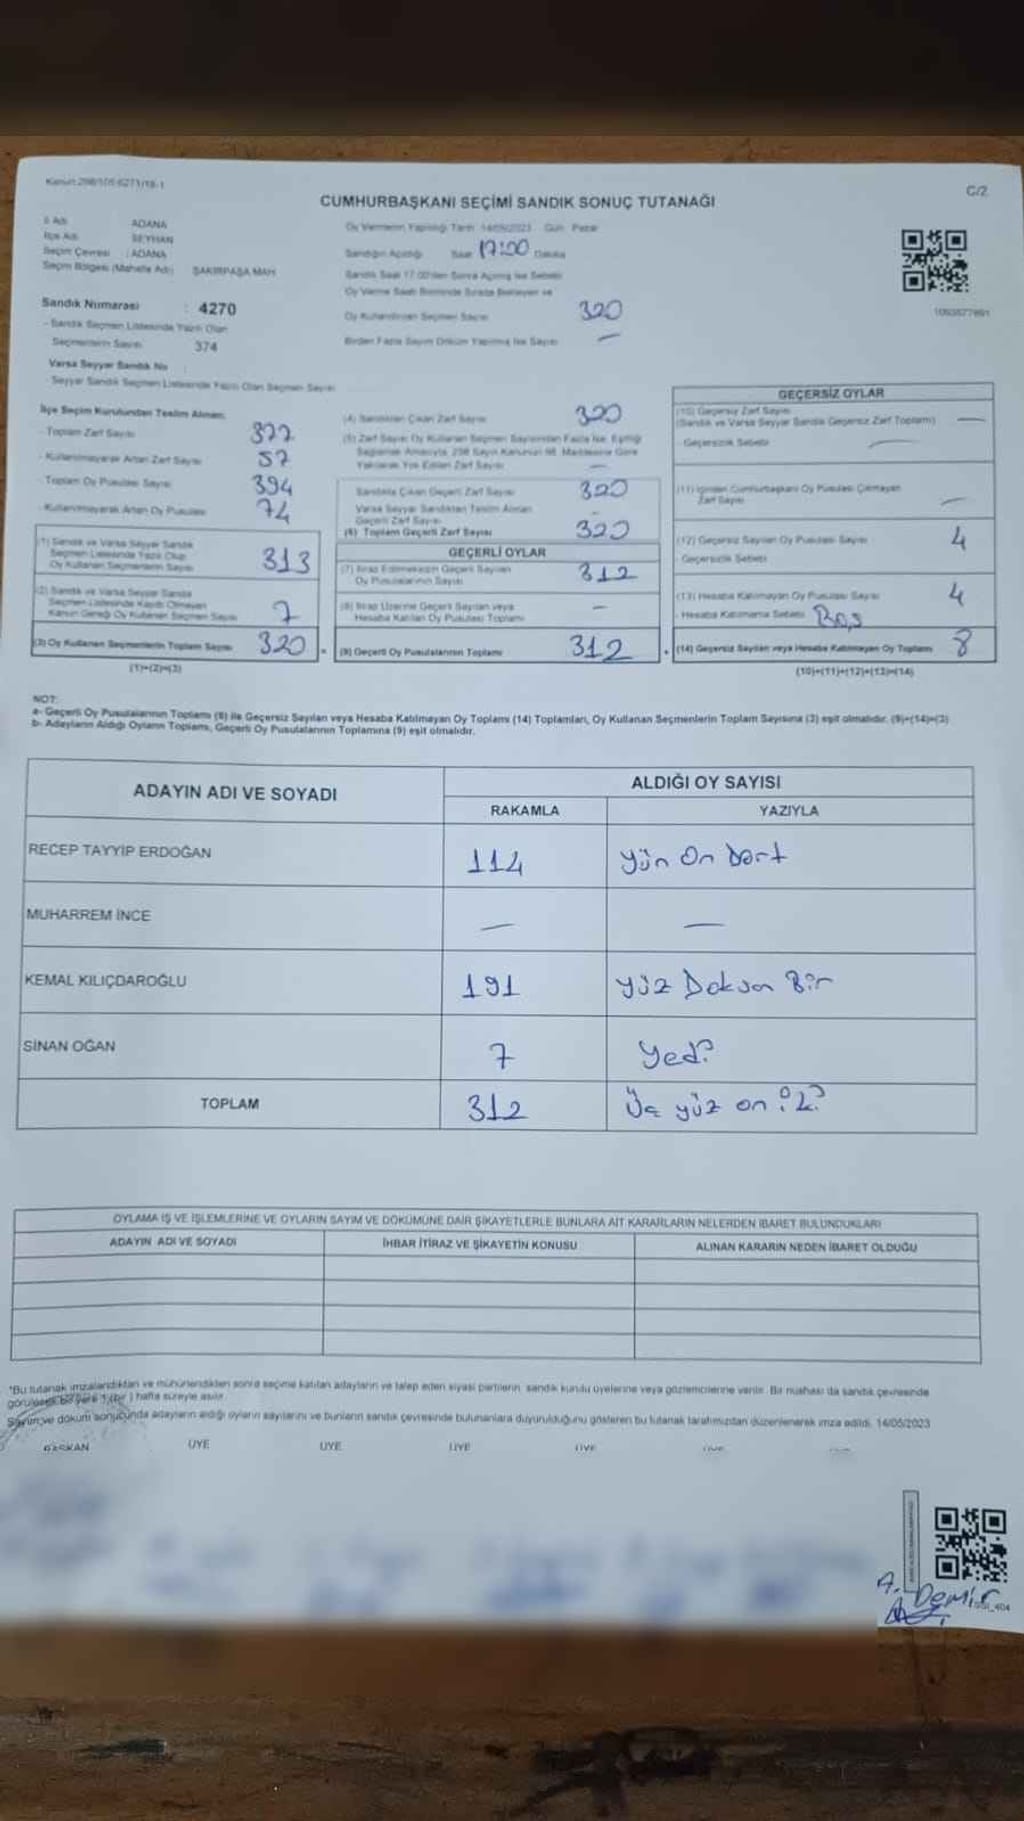 Kanun:298/105-6271/18-1
C/2
CUMHURBAŞKANI SEÇİMİ SANDIK SONUÇ TUTANAĞI
İl Adı ADANA
İlçe Adı SEYHAN
Seçim Çevresi : ADANA
Seçim Bölgesi (Mahalle Adı) ŞAKİRPAŞA MAH
Oy Vermenin Yapıldığı Tarih 14/05/2023 Gün Pazar
Sandığın Açıldığı Saat 17:00 Dakika
Sandık Saat 17.00'den Sonra Açılmış İse Sebebi
Oy Verme Saati Bitiminde Sırada Bekleyen ve
Oy Kullandırılan Seçmen Sayısı 320
Birden Fazla Sayım Döküm Yapılmış İse Sayısı —
Sandık Numarası : 4270
- Sandık Seçmen Listesinde Yazılı Olan
Seçmenlerin Sayısı 374
Varsa Seyyar Sandık No :
- Seyyar Sandık Seçmen Listesinde Yazılı Olan Seçmen Sayısı
İlçe Seçim Kurulundan Teslim Alınan;
- Toplam Zarf Sayısı 377
- Kullanılmayarak Artan Zarf Sayısı 57
- Toplam Oy Pusulası Sayısı 394
- Kullanılmayarak Artan Oy Pusulası 74
(1) Sandık ve Varsa Seyyar Sandık
Seçmen Listesinde Yazılı Olup
Oy Kullanan Seçmenlerin Sayısı 313
(2) Sandık ve Varsa Seyyar Sandık
Seçmen Listesinde Kayıtlı Olmayan
Kanun Gereği Oy Kullanan Seçmen Sayısı 7
(3) Oy Kullanan Seçmenlerin Toplam Sayısı 320
(1)+(2)=(3)
(4) Sandıktan Çıkan Zarf Sayısı 320
(5) Zarf Sayısı Oy Kullanan Seçmen Sayısından Fazla İse, Eşitliği
Sağlamak Amacıyla, 298 Sayılı Kanunun 98. Maddesine Göre
Yakılarak Yok Edilen Zarf Sayısı —
Sandıkta Çıkan Geçerli Zarf Sayısı 320
Varsa Seyyar Sandıktan Teslim Alınan
Geçerli Zarf Sayısı
(6) Toplam Geçerli Zarf Sayısı 320
GEÇERLİ OYLAR
(7) İtiraz Edilmeksizin Geçerli Sayılan
Oy Pusulalarının Sayısı 312
(8) İtiraz Üzerine Geçerli Sayılan veya
Hesaba Katılan Oy Pusulası Toplamı —
(9) Geçerli Oy Pusulalarının Toplamı 312
GEÇERSİZ OYLAR
(10) Geçersiz Zarf Sayısı
(Sandık ve Varsa Seyyar Sandık Geçersiz Zarf Toplamı) —
- Geçersizlik Sebebi —
(11) İçinden Cumhurbaşkanı Oy Pusulası Çıkmayan
Zarf Sayısı —
(12) Geçersiz Sayılan Oy Pusulası Sayısı 4
- Geçersizlik Sebebi
(13) Hesaba Katılmayan Oy Pusulası Sayısı 4
- Hesaba Katılmama Sebebi Boş
(14) Geçersiz Sayılan veya Hesaba Katılmayan Oy Toplamı 8
(10)+(11)+(12)+(13)=(14)
NOT:
a- Geçerli Oy Pusulalarının Toplamı (9) ile Geçersiz Sayılan veya Hesaba Katılmayan Oy Toplamı (14) Toplamları, Oy Kullanan Seçmenlerin Toplam Sayısına (3) eşit olmalıdır. (9)+(14)=(3)
b- Adayların Aldığı Oyların Toplamı, Geçerli Oy Pusulalarının Toplamına (9) eşit olmalıdır.
ADAYIN ADI VE SOYADI
ALDIĞI OY SAYISI
RAKAMLA YAZIYLA
RECEP TAYYİP ERDOĞAN 114 yün On Dört
MUHARREM İNCE — —
KEMAL KILIÇDAROĞLU 191 yüz Doksan Bir
SİNAN OĞAN 7 Yedi
TOPLAM 312 Üç yüz on iki
OYLAMA İŞ VE İŞLEMLERİNE VE OYLARIN SAYIM VE DÖKÜMÜNE DAİR ŞİKAYETLERLE BUNLARA AİT KARARLARIN NELERDEN İBARET BULUNDUKLARI
ADAYIN ADI VE SOYADI İHBAR İTİRAZ VE ŞİKAYETİN KONUSU ALINAN KARARIN NEDEN İBARET OLDUĞU
*Bu tutanak imzalandıktan ve mühürlendikten sonra seçime katılan adayların ve talep eden siyasi partilerin sandık kurulu üyelerine veya gözlemcilerine verilir. Bir nüshası da sandık çevresinde
görülecek bir yere 1 (bir) hafta süreyle asılır.
Sayım ve döküm sonucunda adayların aldığı oyların sayılarını ve bunların sandık çevresinde bulunanlara duyurulduğunu gösteren bu tutanak tarafımızdan düzenlenerek imza edildi. 14/05/2023
BAŞKAN ÜYE ÜYE ÜYE ÜYE
A. Demir